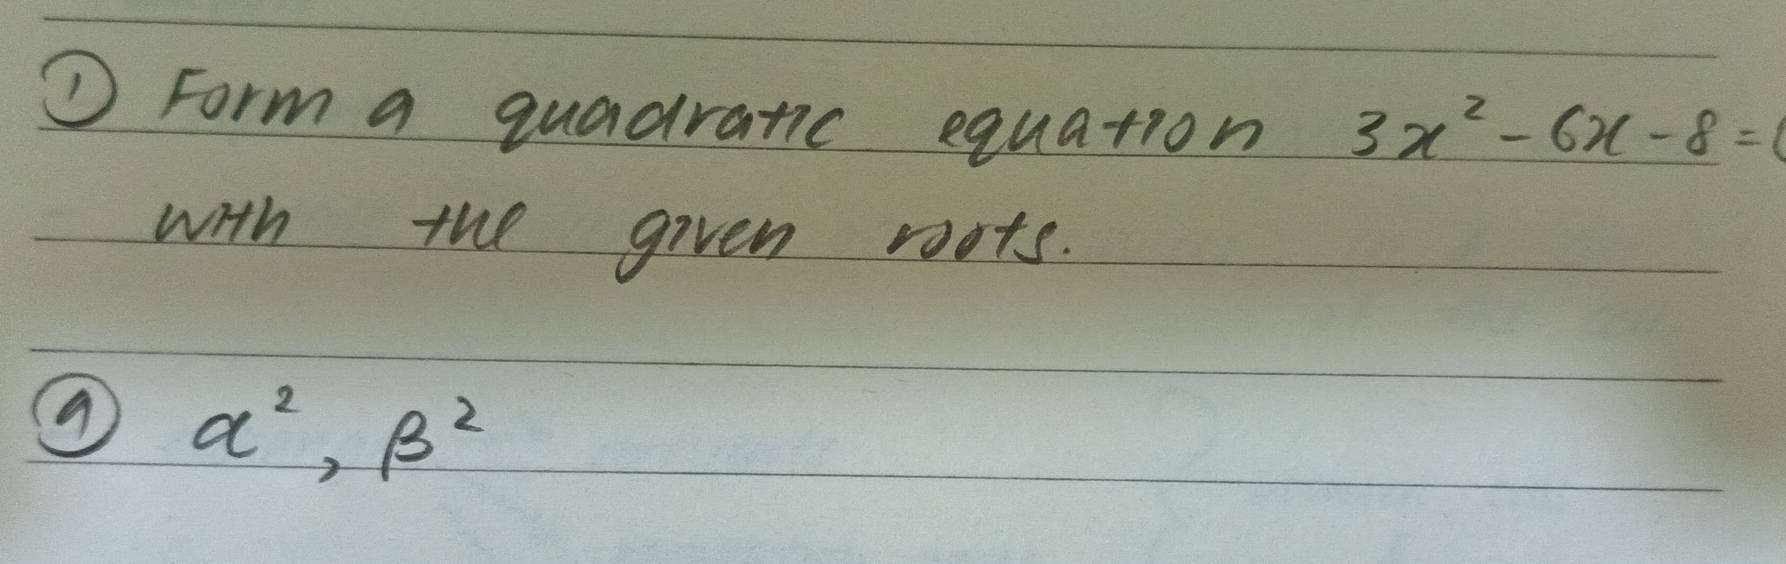 ① Form a quadratic equation 3x² - 6x - 8 = 0
with the given roots.
ⓐ α², β²